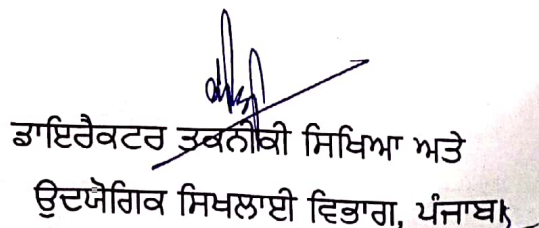 ਡਾਇਰੈਕਟਰ ਤਕਨੀਕੀ ਸਿਖਿਆ ਅਤੇ
ਉਦਯੋਗਿਕ ਸਿਖਲਾਈ ਵਿਭਾਗ, ਪੰਜਾਬ